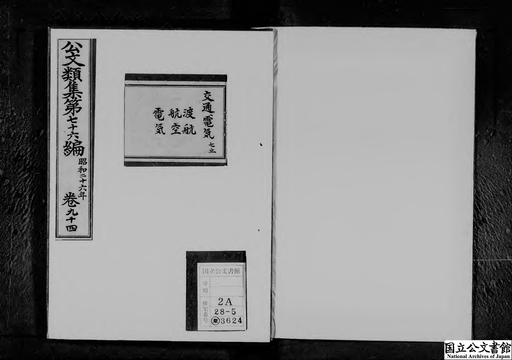 公文類集第七十六編
昭和二十六年
巻九十四
交通電気
七止
渡航
航空
電気
国立公文書館
2A
28-5
3624
国立公文書館
National Archives of Japan